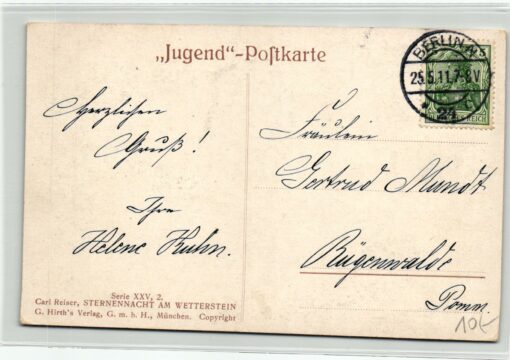 „Jugend“-Postkarte
BERLIN N
25.5.11.7-8V
24
Herzlichen
Gruß!
Ihre
Helene Kuhn.
Fräulein
Gertrud Mundt
Rügenwalde
Pomm.
Serie XXV, 2.
Carl Reiser, STERNENNACHT AM WETTERSTEIN
G. Hirth's Verlag, G. m. b. H., München. Copyright
10€